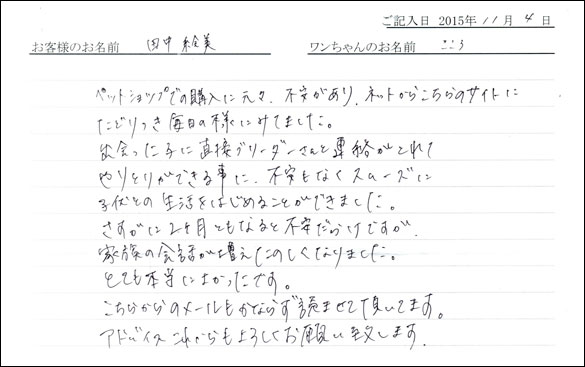 ご記入日 2015年 11月 4 日
お客様のお名前 田中 絵美 ワンちゃんのお名前 こころ
ペットショップでの購入に元々、不安があり、ネットからこちらのサイトに
たどりつき毎日の様にみてました。
出会った子に直接ブリーダーさんと連絡がとれて
やりとりができる事に、不安もなくスムーズに
子犬との生活をはじめることができました。
さすがに2ヶ月ともなると不安だらけですが、
家族の会話が増えたのしくなりました。
とても本当によかったです。
こちらからのメールもかならず読ませて頂いてます。
アドバイスこれからもよろしくお願い致します.